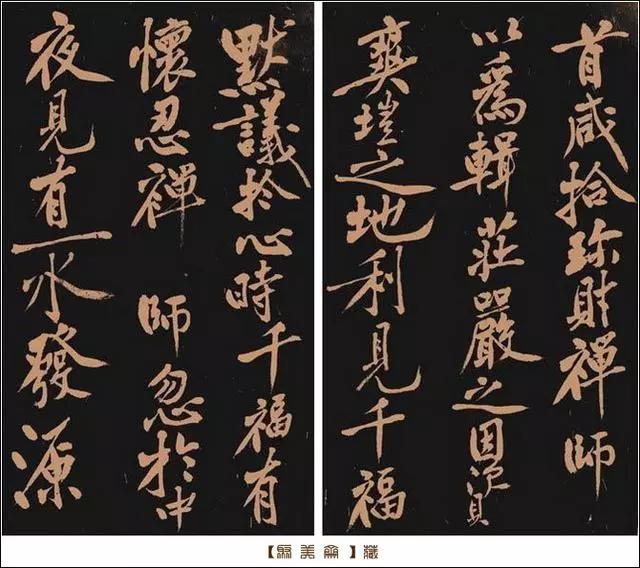 首咸捨珎財禪師
以爲輯莊嚴之因資
爽塏之地利見千福
默議於心時千福有
懷忍禪 師忽於中
夜見有一水發源
【美】藏